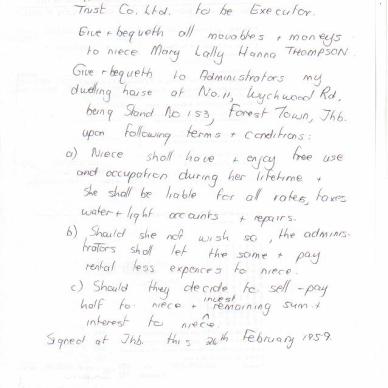 Trust Co. Ltd. to be Executor.
Give + bequeth all movables + moneys
to niece Mary Lally Hanna THOMPSON
Give + bequeth to Administrators my
dwelling house at No. 11, Wychwood Rd,
being Stand No 153, Forest Town, Jhb.
upon following terms + conditions:
a) Niece shall have + enjoy free use
and occupation during her lifetime +
she shall be liable for all rates, taxes
water + light accounts + repairs.
b) Should she not wish so, the adminis-
trators shall let the same + pay
rental less expences to niece.
c) Should they decide to sell - pay
half to niece + invest remaining sum +
interest to niece.
Signed at Jhb. this 26th February 1959.